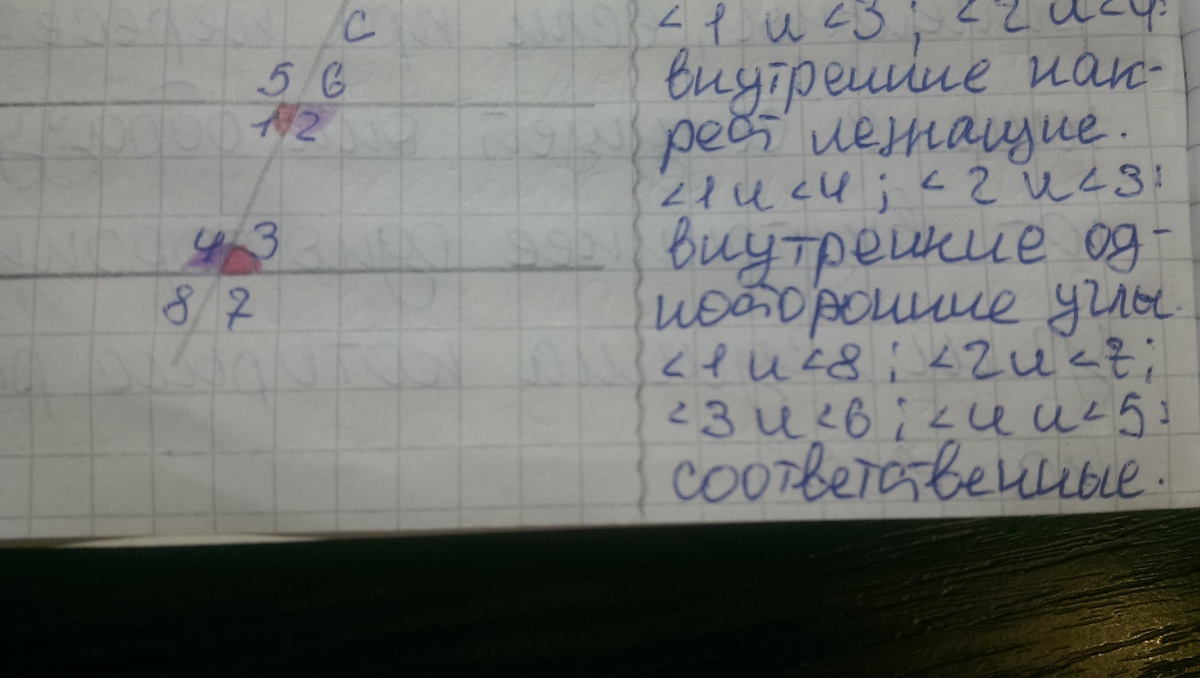 c
5 6
1 2
4 3
8 7
<1 и <3 ; <2 и <4:
внутренние нак-
рест лежащие.
<1 и <4 ; <2 и <3:
внутренние од-
носторонние углы.
<1 и <8 ; <2 и <7;
<3 и <6 ; <4 и <5:
соответственные.